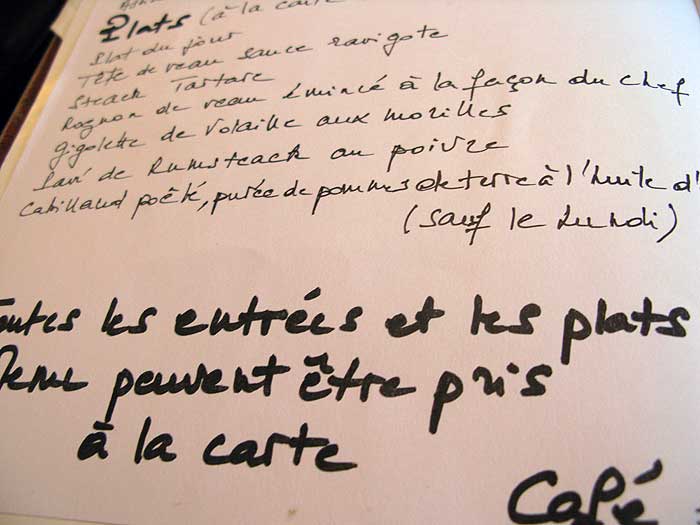 Plats (à la carte
Plat du jour
Tête de veau sauce ravigote
Steack Tartare
Rognon de veau émincé à la façon du chef
Gigolette de Volaille aux morilles
Pavé de Rumsteack au poivre
Cabillaud poêlé, purée de pommes de terre à l'huile d'
(sauf le Lundi)
Toutes les entrées et les plats
Menu peuvent être pris
à la carte
Café